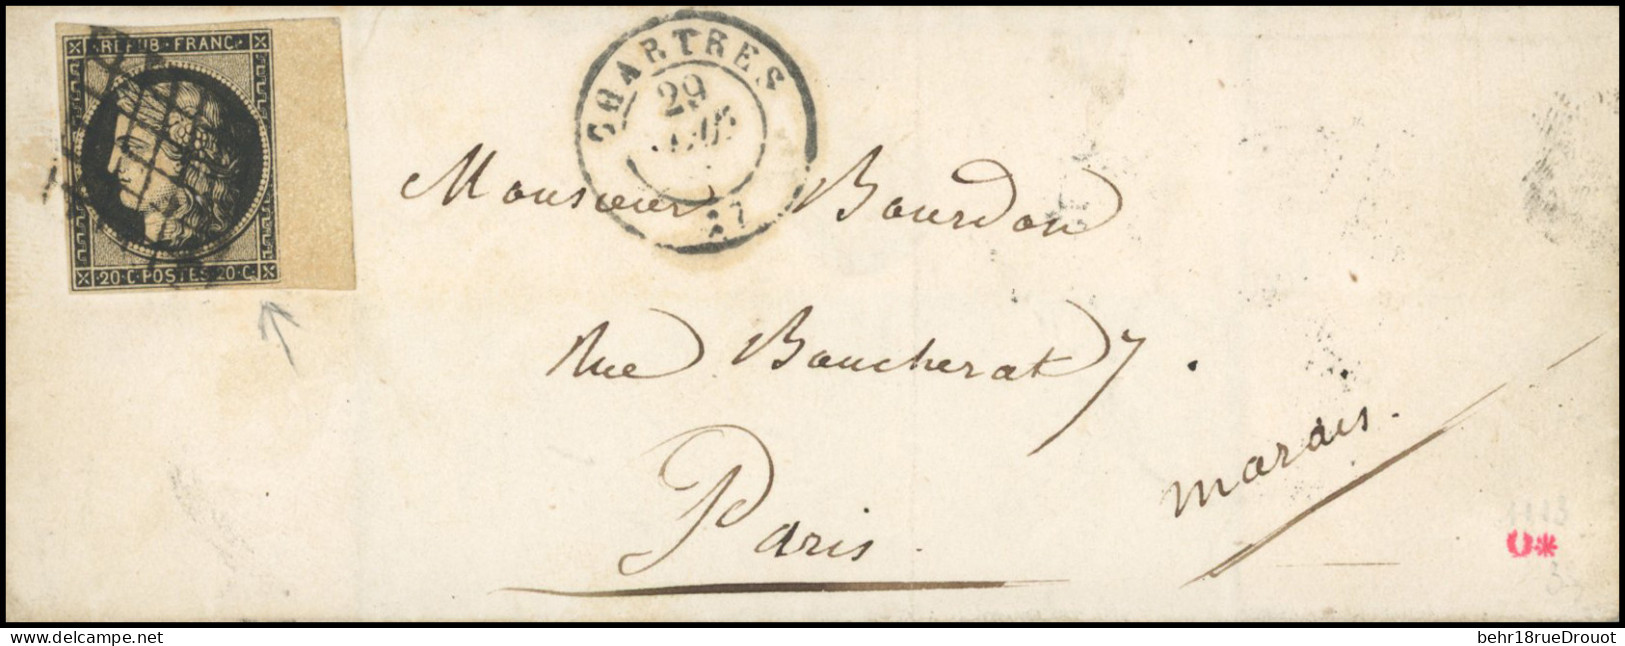 REPUB·FRANC
20·C·POSTES·20·C·
CHARTRES
29
27
Monsieur Bourdon
Rue Boucherat 7.
Paris.
marais.
1113
delcampe.net
behr18rueDrouot